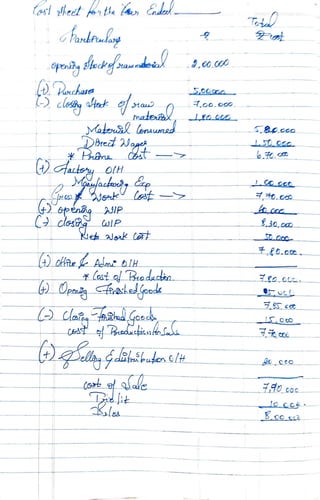 Cost Sheet for the Year Ended
Total
Particulars ₹ ₹ cost
opening Stock of raw material 2,00,000
(+) Purchases 5,00,000
(-) closing stock of raw 7,00,000
material 1,80,000
Material Consumed 5,20,000
Direct Wages 1,50,000
* Prime Cost → 6,70,000
(+) factory O/H
Manufactory Exp 1,00,000
Gross Work Cost → 7,70,000
(+) opening WIP 60,000
(-) closing WIP 8,30,000
Net Work Cost 50,000
7,80,000
(+) office & Admi O/H
* Cost of Production 7,80,000
(+) Opening Finished Goods
7,85,000
(-) Closing Finished Goods 15,000
cost of Production for Sale
(+) Selling & distribution O/H 20,000
cost of Sale 7,90,000
Profit 10,000
Sales 8,00,000